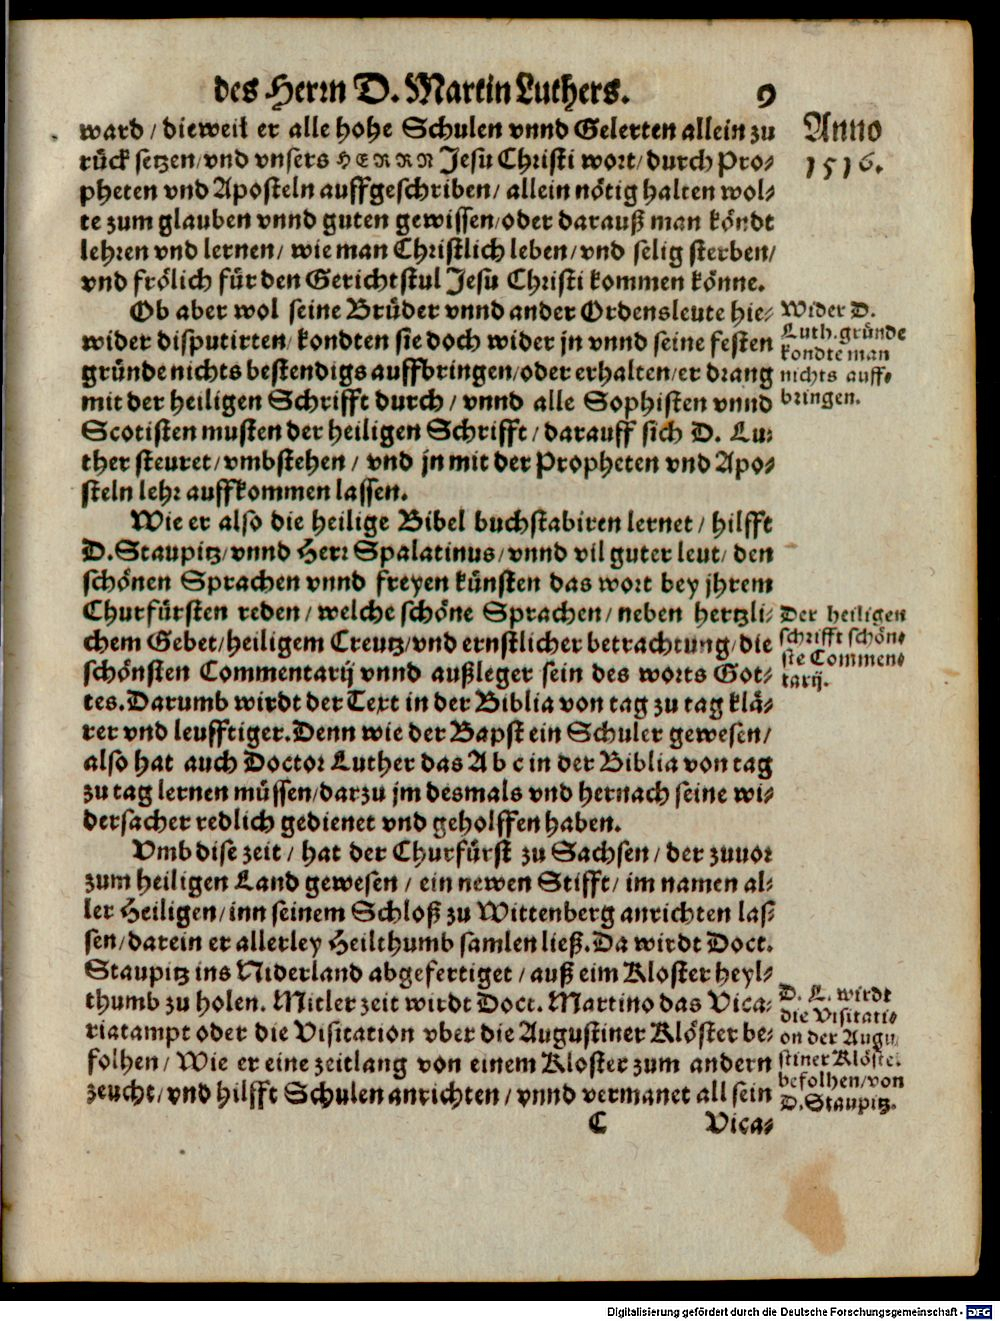 des Herrn D. Martin Luthers. 9
ward / dieweil er alle hohe Schulen vnnd Gelerten allein zu
rück setzen / vnd vnsers HERRN Jesu Christi wort / durch Pro⸗
pheten vnd Aposteln auffgeschriben / allein nötig halten wol⸗
te zum glauben vnnd guten gewissen / oder darauß man köndt
lehren vnd lernen / wie man Christlich leben / vnd selig sterben /
vnd frölich für den Gerichtstul Jesu Christi kommen könne.
Anno
1516.
Ob aber wol seine Brüder vnnd ander Ordensleute hie⸗
wider disputirten / kondten sie doch wider jn vnnd seine festen
gründe nichts bestendigs auffbringen / oder erhalten / er drang
mit der heiligen Schrifft durch / vnnd alle Sophisten vnnd
Scotisten musten der heiligen Schrifft / darauff sich D. Lu⸗
ther steuret / vmbstehen / vnd jn mit der Propheten vnd Apo⸗
steln lehr auffkommen lassen.
Wider D.
Luth. gründe
kondte man
nichts auff⸗
bringen.
Wie er also die heilige Bibel buchstabiren lernet / hilfft
D. Staupitz / vnnd Herr Spalatinus / vnnd vil guter leut / den
schönen Sprachen vnnd freyen künsten das wort bey jhrem
Churfürsten reden / welche schöne Sprachen / neben hertzli⸗
chem Gebet / heiligem Creutz / vnd ernstlicher betrachtung / die
schönsten Commentarij vnnd außleger sein des worts Got⸗
tes. Darumb wirdt der Text in der Biblia von tag zu tag klä⸗
rer vnd leufftiger. Denn wie der Bapst ein Schuler gewesen /
also hat auch Doctor Luther das A b c in der Biblia von tag
zu tag lernen müssen / darzu jm desmals vnd hernach seine wi⸗
dersacher redlich gedienet vnd geholffen haben.
Der heiligen
schrifft schön⸗
ste Commen⸗
tarij.
Vmb dise zeit / hat der Churfürst zu Sachsen / der zuuor
zum heiligen Land gewesen / ein newen Stifft / im namen al⸗
ler Heiligen / inn seinem Schloß zu Wittenberg anrichten las⸗
sen / darein er allerley Heilthumb samlen ließ. Da wirdt Doct.
Staupitz ins Niderland abgefertiget / auß eim Kloster heyl⸗
thumb zu holen. Mitler zeit wirdt Doct. Martino das Vica⸗
riatampt oder die Visitation vber die Augustiner Klöster be⸗
folhen / Wie er eine zeitlang von einem Kloster zum andern
zeucht / vnd hilfft Schulen anrichten / vnnd vermanet all sein
D. L. wirdt
die Visitati⸗
on der Augu
stiner Klöster
befolhen / von
D. Staupitz.
C Vica⸗
Digitalisierung gefördert durch die Deutsche Forschungsgemeinschaft - DFG